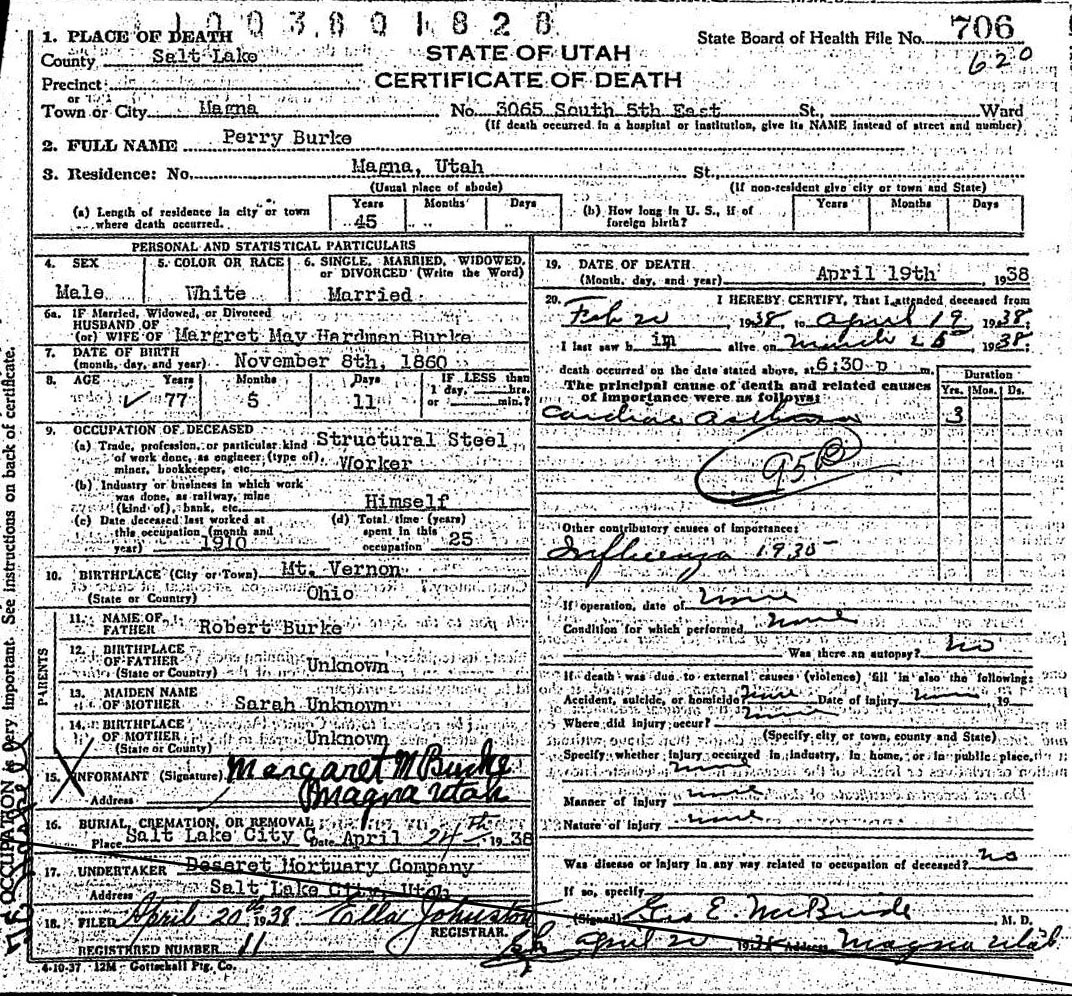 1003801828
1. PLACE OF DEATH
County Salt Lake
STATE OF UTAH
State Board of Health File No. 706
620
Precinct
CERTIFICATE OF DEATH
or
Town or City Magna No. 3065 South 5th East St., Ward
(If death occurred in a hospital or institution, give its NAME instead of street and number)
2. FULL NAME Perry Burke
3. Residence: No. Magna, Utah St.
(Usual place of abode) (If non-resident give city or town and State)
(a) Length of residence in city or town where death occurred. Years 45 Months Days
(b) How long in U. S., if of foreign birth? Years Months Days
PERSONAL AND STATISTICAL PARTICULARS
4. SEX 5. COLOR OR RACE 6. SINGLE, MARRIED, WIDOWED, or DIVORCED (Write the Word)
Male White Married
6a. IF Married, Widowed, or Divorced
HUSBAND OF
(or) WIFE OF Margret May Hardman Burke
7. DATE OF BIRTH
(month, day, and year) November 8th, 1860
8. AGE Years Months Days IF LESS than
1 day, hrs.
✓ 77 5 11 or min.?
9. OCCUPATION OF DECEASED
(a) Trade, profession, or particular kind Structural Steel
of work done, as engineer (type of),
miner, bookkeeper, etc. Worker
(b) Industry or business in which work
was done, as railway, mine
(kind of), bank, etc. Himself
(c) Date deceased last worked at
this occupation (month and
year) 1910
(d) Total time (years)
spent in this
occupation 25
10. BIRTHPLACE (City or Town) Mt. Vernon
(State or Country) Ohio
PARENTS
11. NAME OF
FATHER Robert Burke
12. BIRTHPLACE
OF FATHER
(State or Country) Unknown
13. MAIDEN NAME
OF MOTHER Sarah Unknown
14. BIRTHPLACE
OF MOTHER
(State or County) Unknown
15. INFORMANT (Signature) Margaret M Burke
Address Magna Utah
16. BURIAL, CREMATION, OR REMOVAL
Place Salt Lake City C. Date April 24th 1938
17. UNDERTAKER Deseret Mortuary Company
Address Salt Lake City, Utah
18. FILED April 20th 1938 Ella Johnston
REGISTRAR.
REGISTERED NUMBER 11
4-10-37 12M - Gottschall Ptg. Co.
19. DATE OF DEATH
(Month, day, and year) April 19th, 1938
20. I HEREBY CERTIFY, That I attended deceased from
Feb 20, 1938, to April 19 1938;
I last saw h im alive on March 25th 1938;
death occurred on the date stated above, at 6:30 p m.
Duration
The principal cause of death and related causes
of importance were as follows: Yrs. Mos. Ds.
Cardiac asthma 3
95B
Other contributory causes of importance:
Influenza 1935
If operation, date of none
Condition for which performed none
Was there an autopsy? no
If death was due to external causes (violence) fill in also the following:
Accident, suicide, or homicide? none Date of injury none 19
Where did injury occur? none
(Specify city or town, county and State)
Specify whether injury occurred in industry, in home, or in public place.
none
Manner of injury none
Nature of injury none
Was disease or injury in any way related to occupation of deceased? no
If so, specify
(Signed) Geo E McBride M. D.
April 20 1938 Address Magna Utah
OCCUPATION is very important. See instructions on back of certificate.